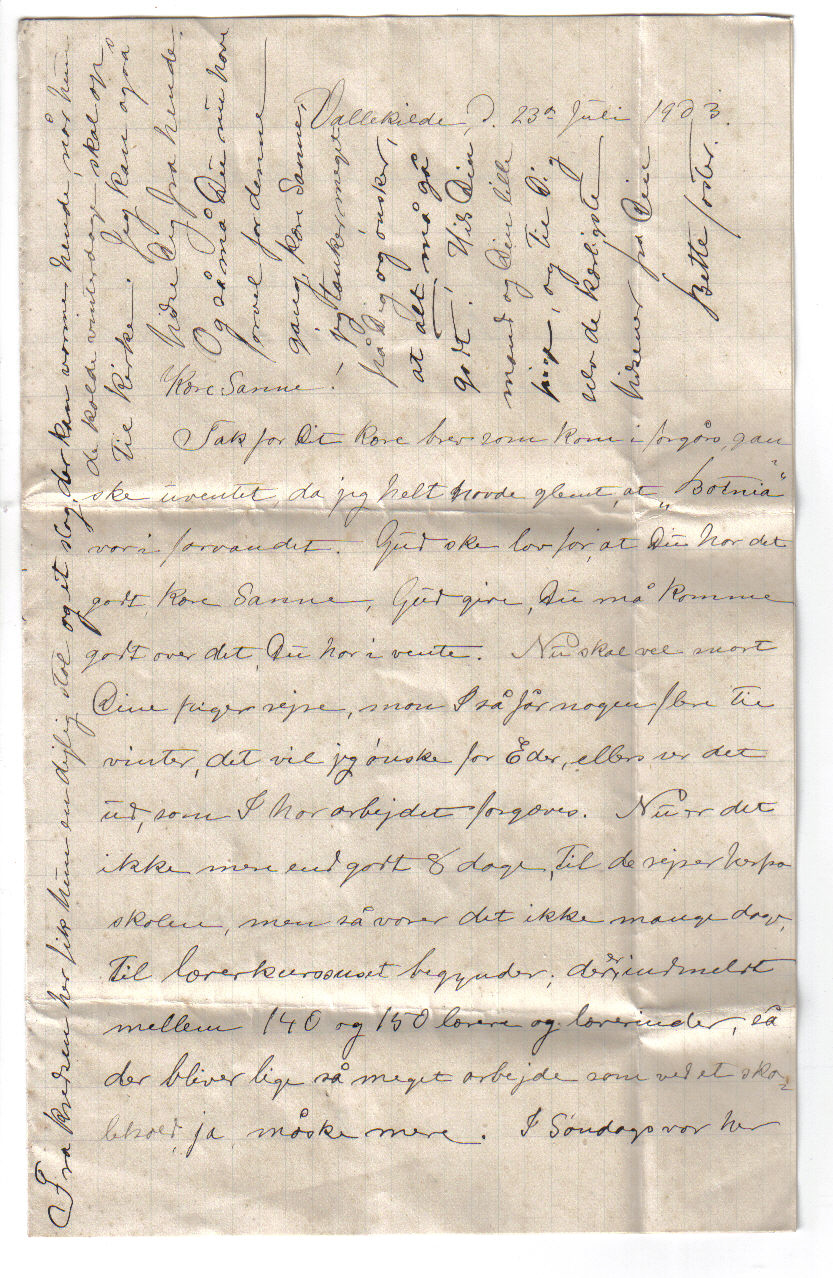 Vallekilde, d. 23de Juli 1903.
Kære Sanne!
Tak for Dit kære brev som kom i forgårs, gan
ske uventet, da jeg helt havde glemt, at „Botnia"
var i farvandet. Gud ske lov for, at Du har det
godt, kære Sanne, Gud give, Du må komme
godt over det, Du har i vente. Nu skal vel snart
Dine piger rejse, mon I så får nogen flere til
vinter, det vil jeg ønske for Eder, ellers ser det
ud, som I har arbejdet forgæves. Nu er det
ikke mere end godt 8 dage, til de rejser herfra
skolen, men så varer det ikke mange dage,
til lærerkursuset begynder; der er indmeldt
mellem 140 og 150 lærere og lærerinder, så
der bliver lige så meget arbejde som ved et sko-
lehold, ja, måske mere. I Søndags var her
Fra kredsen her fik hun en dejlig stol og et slag, der kan varme hende, når hun
de kolde vinterdage skal op
til kirke. Jeg kan også
hilse Dig fra hende.
Og så må Du nu have
farvel for denne
gang, kære Sanne,
jeg tænker meget
på Dig og ønsker,
at alt må gå
godt! Hils Din
mand og Din lille
pige, og til Dig
selv de kærligste
hilsener fra Din
Bette søster.